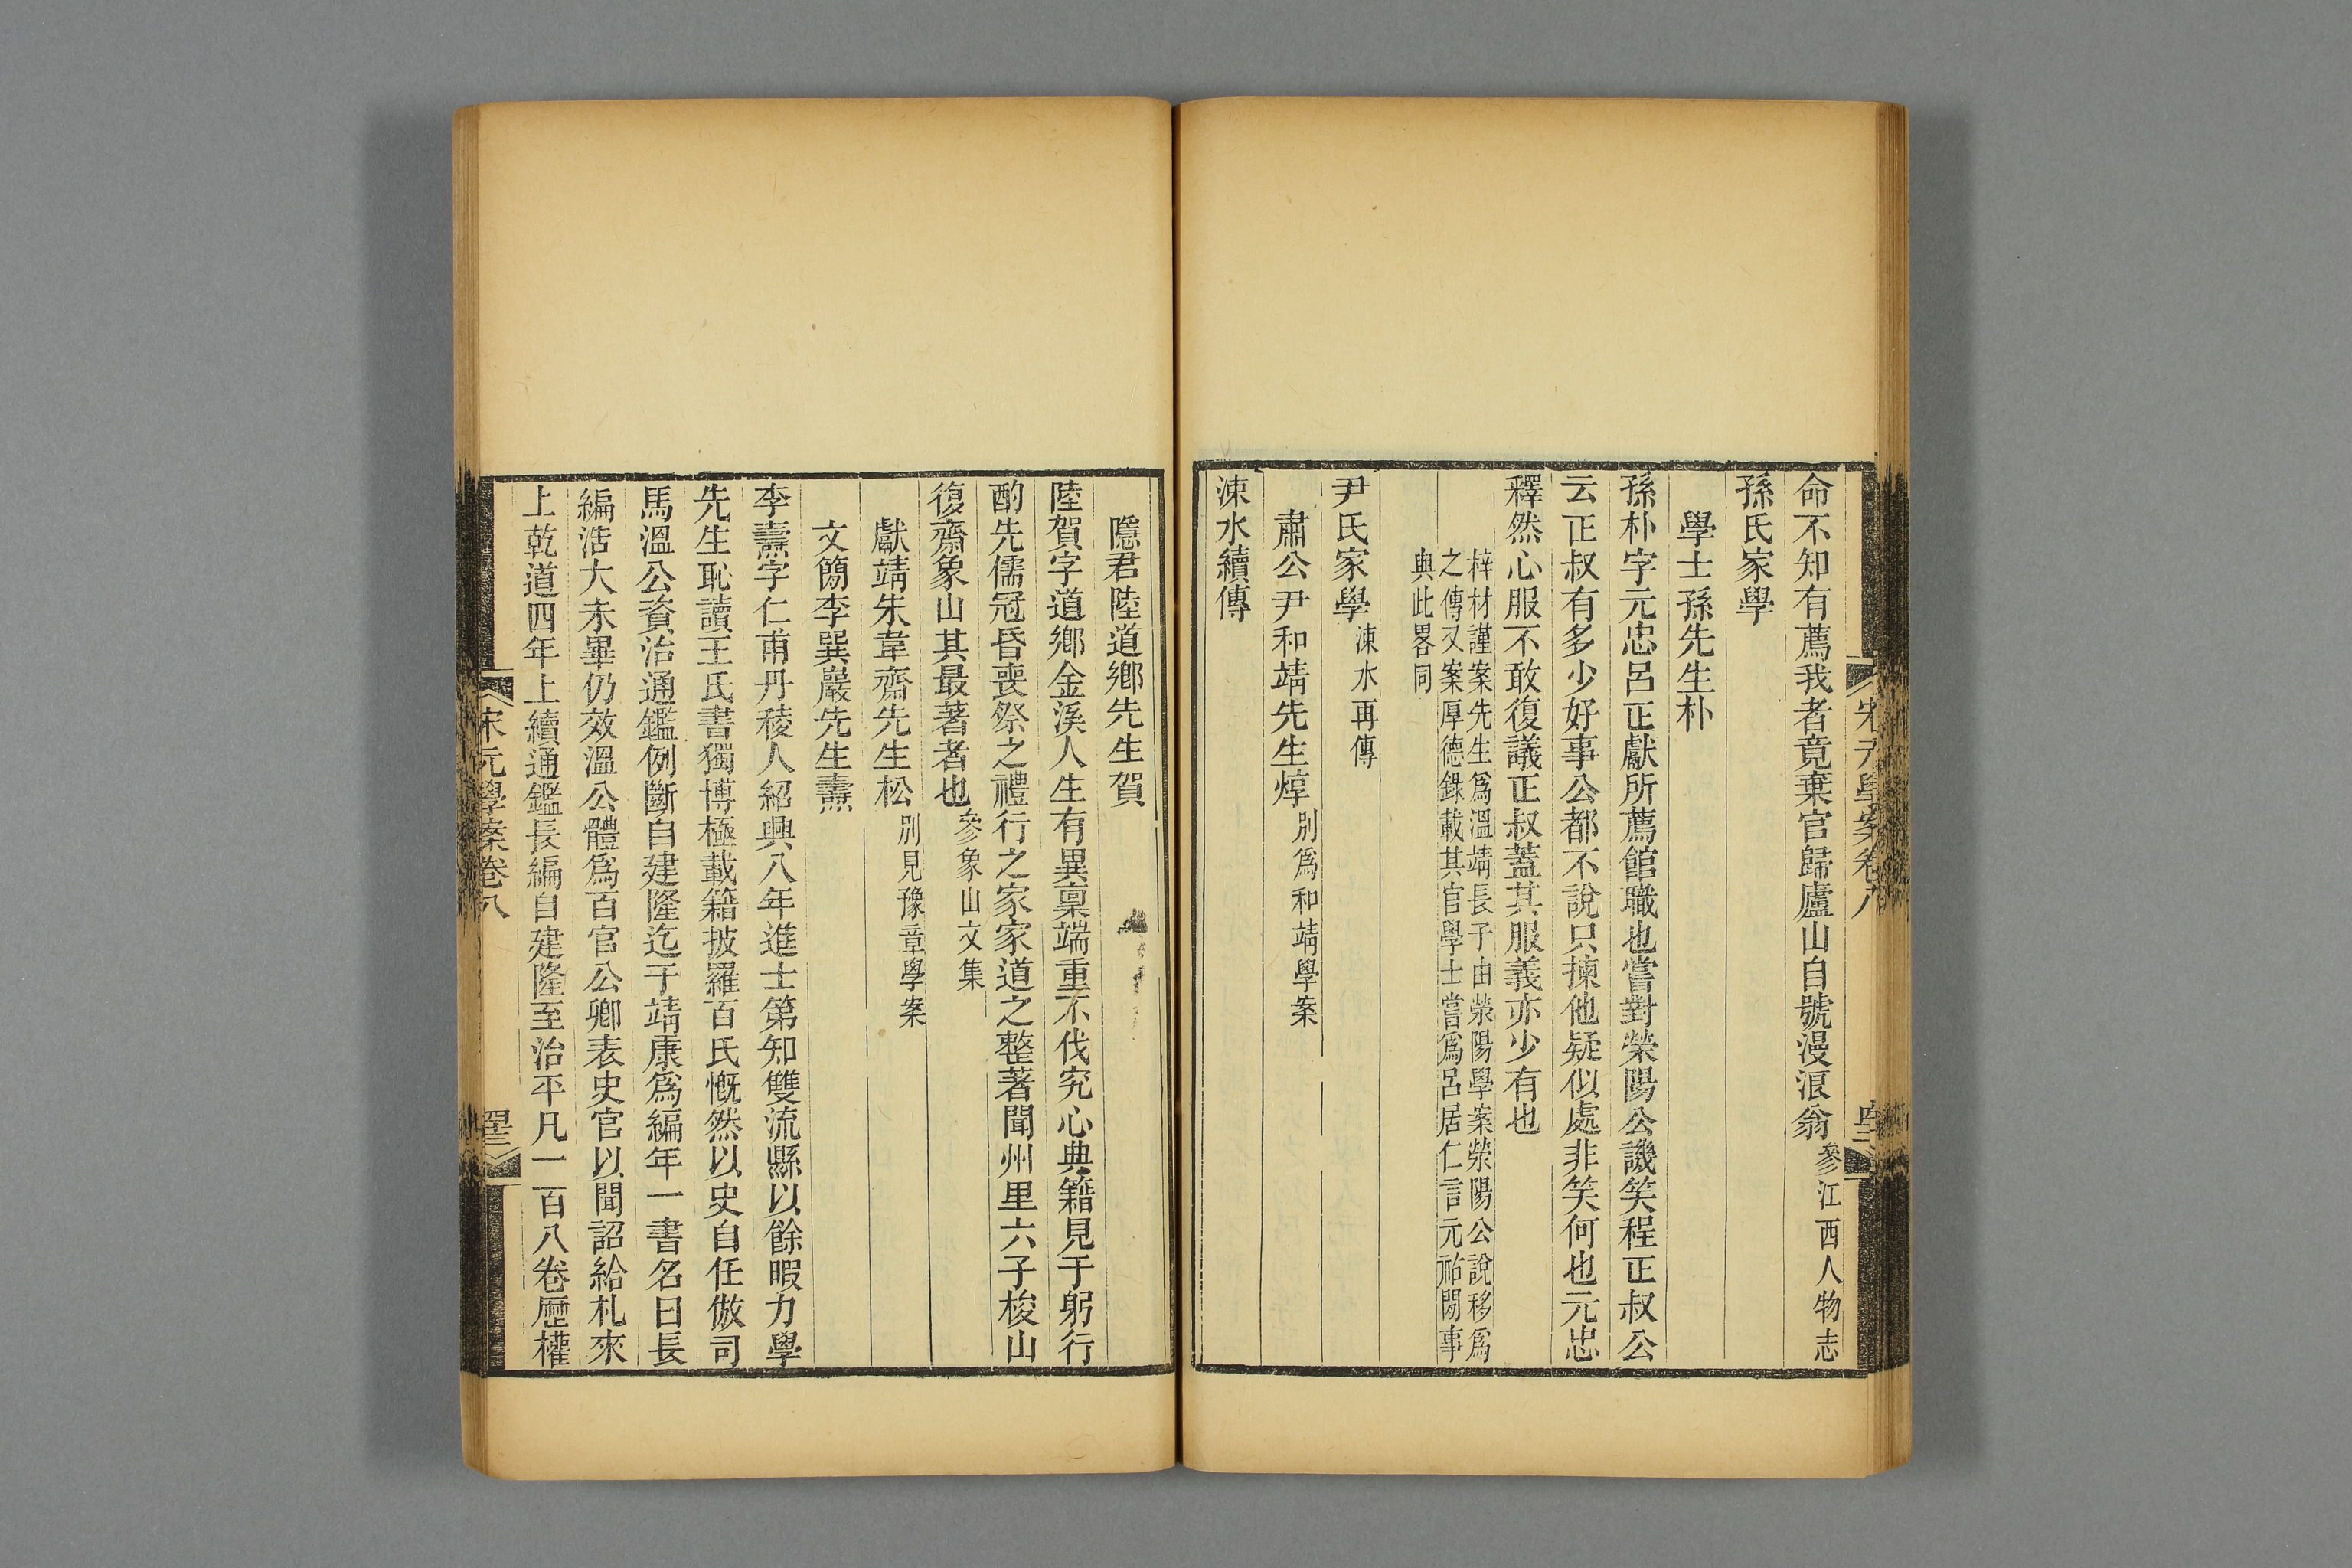 命不知有薦我者竟棄官歸廬山自號漫浪翁參江西人物志
孫氏家學
學士孫先生朴
孫朴字元忠呂正獻所薦館職也嘗對榮陽公譏笑程正叔公
云正叔有多少好事公都不說只揀他疑似處非笑何也元忠
釋然心服不敢復議正叔蓋其服義亦少有也
梓材謹案先生爲溫靖長子由滎陽學案滎陽公說移爲
之傳又案厚德錄載其官學士嘗爲呂居仁言元祐閒事
與此畧同
尹氏家學涑水再傳
肅公尹和靖先生焞別爲和靖學案
涑水續傳
隱君陸道鄉先生賀
陸賀字道鄉金溪人生有異稟端重不伐究心典籍見于躬行
酌先儒冠昏喪祭之禮行之家家道之整著聞州里六子梭山
復齋象山其最著者也參象山文集
獻靖朱韋齋先生松別見豫章學案
文簡李巽巖先生燾
李燾字仁甫丹稜人紹興八年進士第知雙流縣以餘暇力學
先生恥讀王氏書獨博極載籍披羅百氏慨然以史自任倣司
馬溫公資治通鑑例斷自建隆迄于靖康爲編年一書名曰長
編浩大未畢仍效溫公體爲百官公卿表史官以聞詔給札來
上乾道四年上續通鑑長編自建隆至治平凡一百八卷歷權
宋元學案卷八